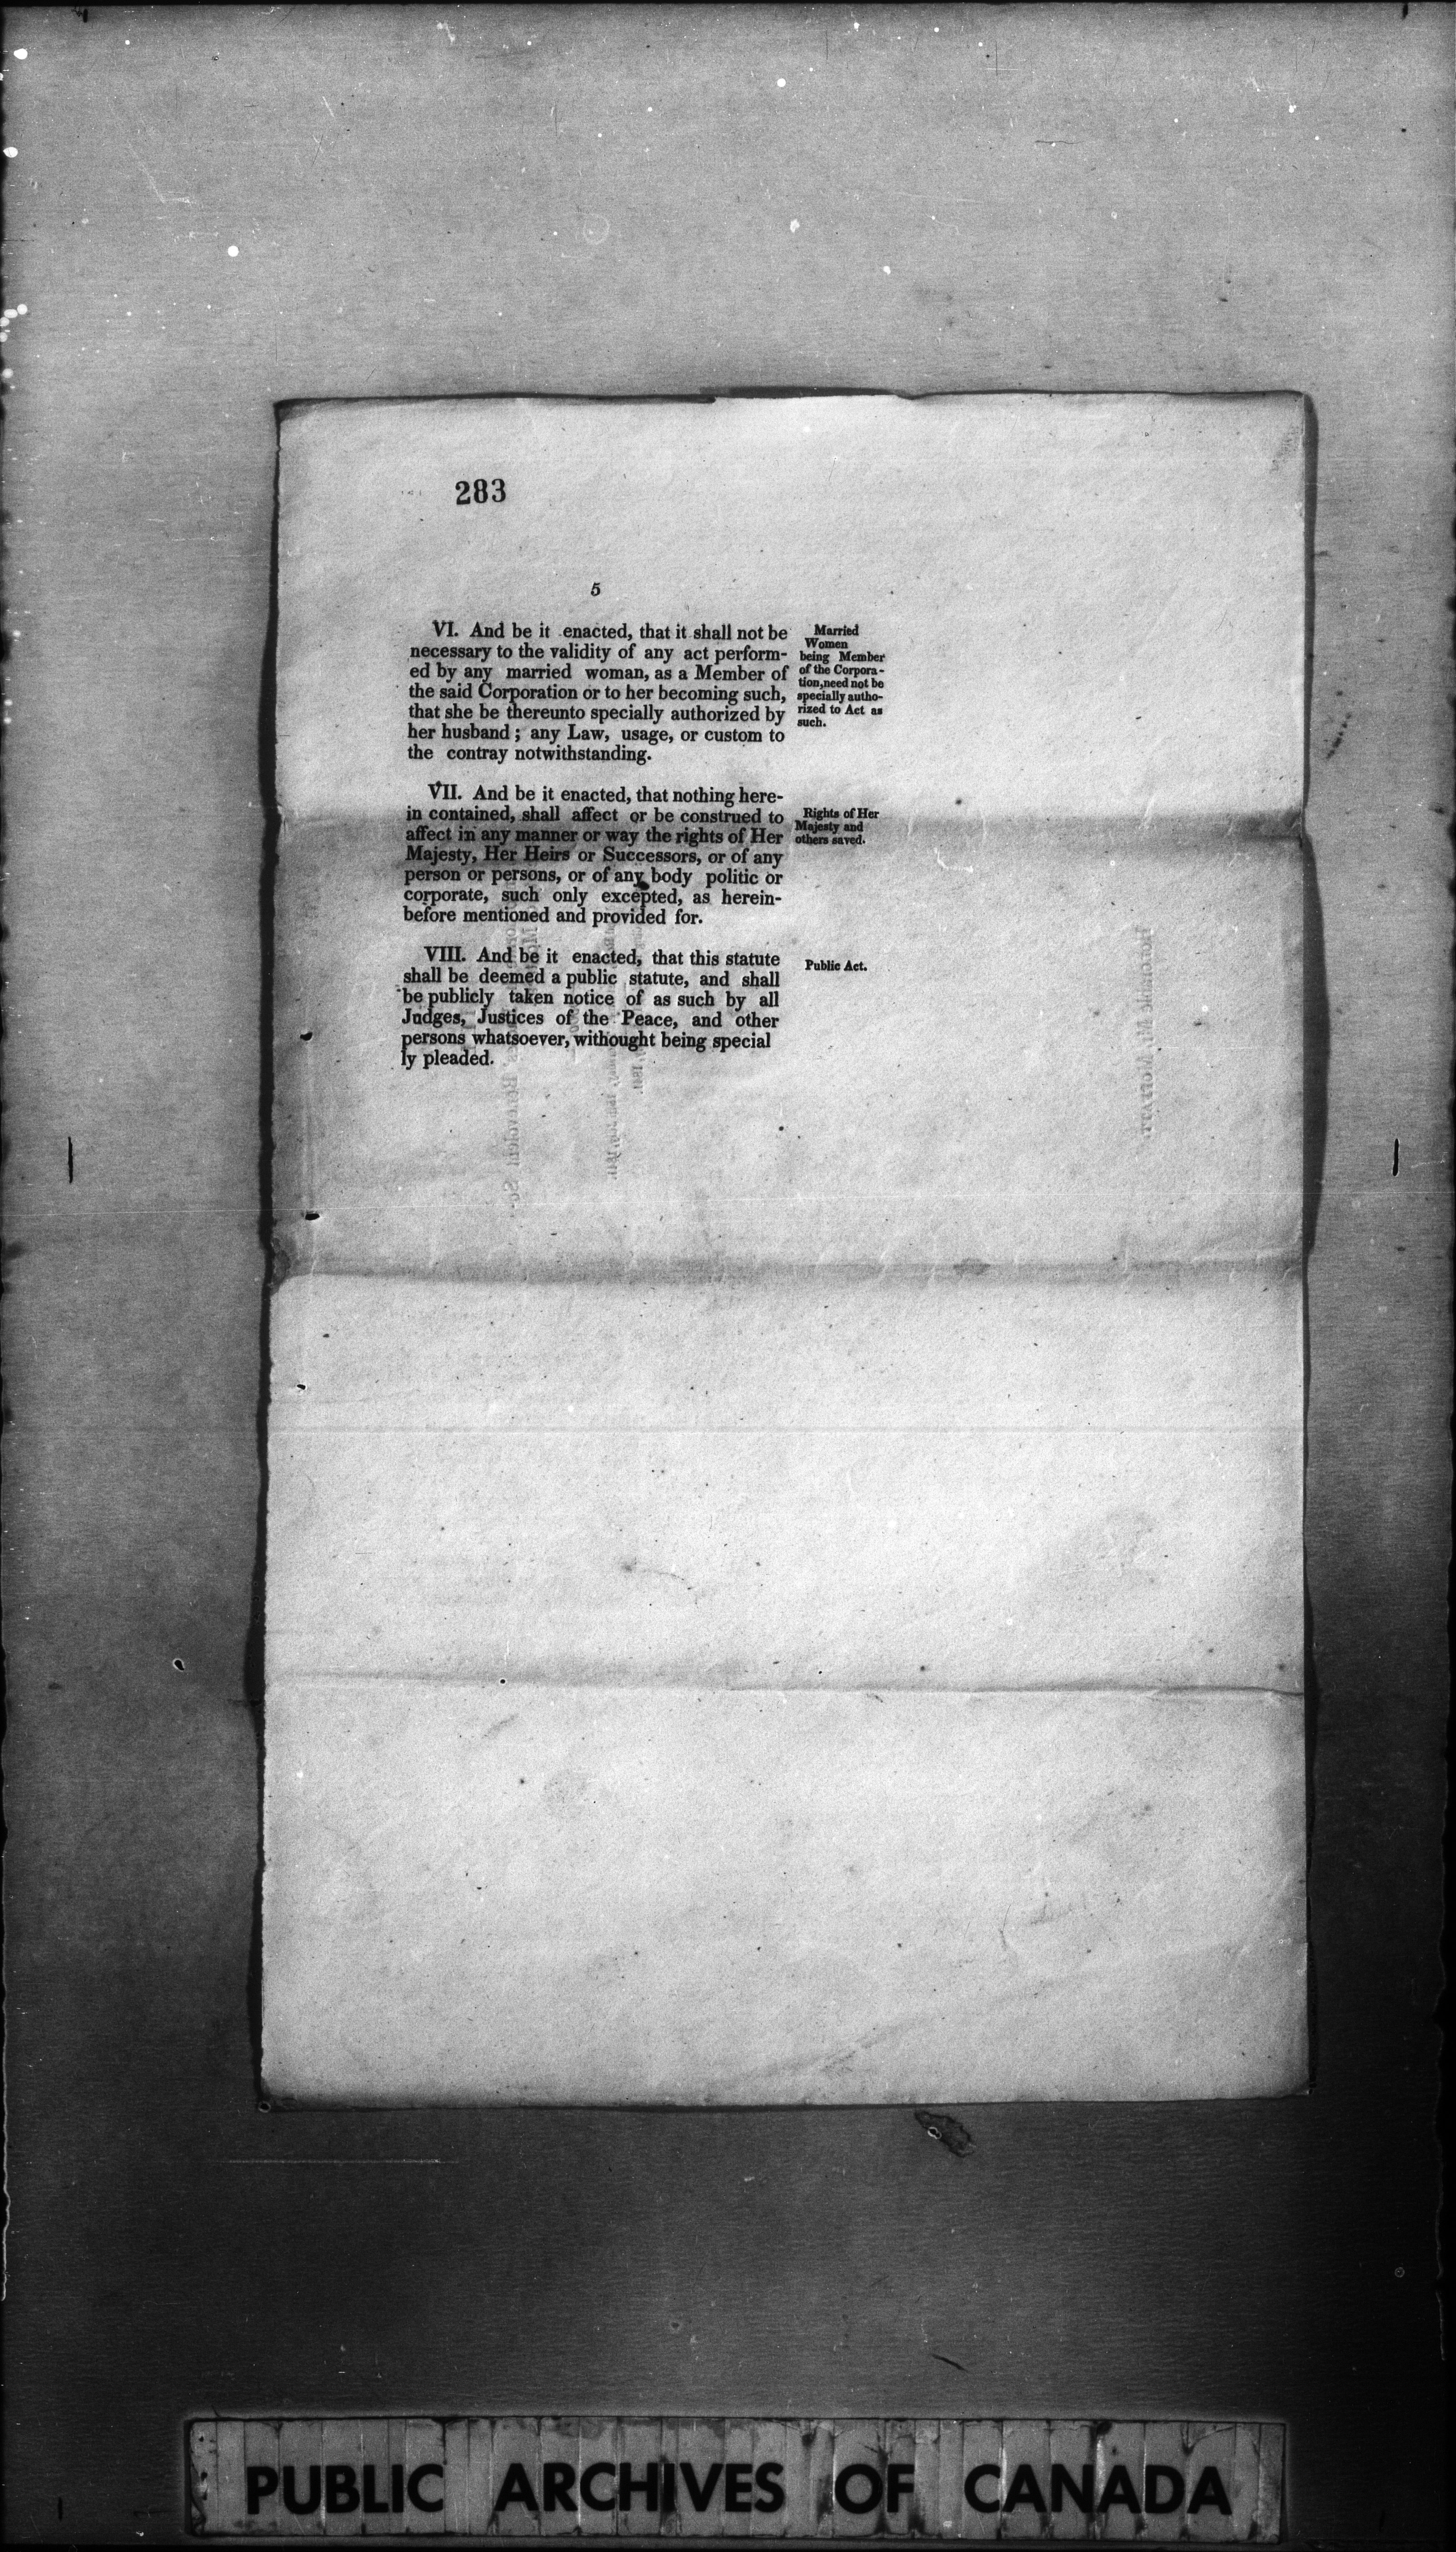 283
5
VI. And be it enacted, that it shall not be
necessary to the validity of any act perform-
ed by any married woman, as a Member of
the said Corporation or to her becoming such,
that she be thereunto specially authorized by
her husband; any Law, usage, or custom to
the contray notwithstanding.
Married
Women
being Member
of the Corpora-
tion, need not be
specially autho-
rized to Act as
such.
VII. And be it enacted, that nothing here-
in contained, shall affect or be construed to
affect in any manner or way the rights of Her
Majesty, Her Heirs or Successors, or of any
person or persons, or of any body politic or
corporate, such only excepted, as herein-
before mentioned and provided for.
Rights of Her
Majesty and
others saved.
VIII. And be it enacted, that this statute
shall be deemed a public statute, and shall
be publicly taken notice of as such by all
Judges, Justices of the Peace, and other
persons whatsoever, withought being special
ly pleaded.
Public Act.
PUBLIC ARCHIVES OF CANADA